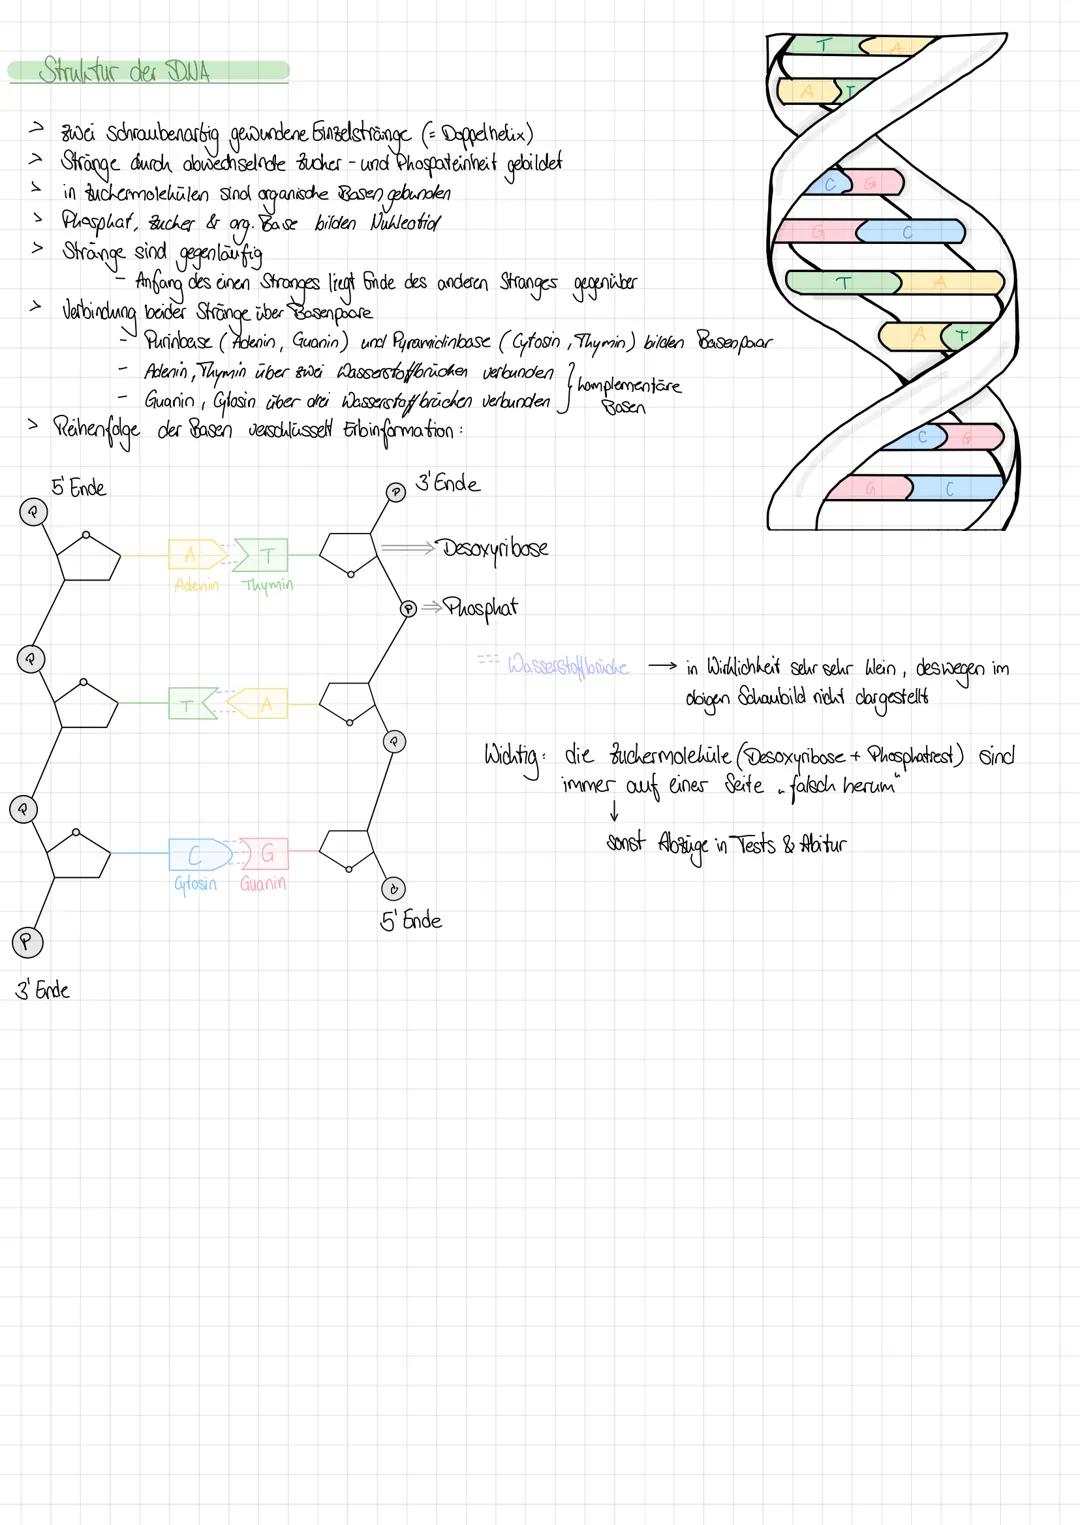 Struktur der DNA
> zwei schraubenartig gewundene Einzelstränge (= Doppelhelix)
> Stränge durch abwechselnde Zucker - und Phospateinheit gebildet
> in Zuckermolekülen sind organische Basen gebunden
> Phosphat, Zucker & org. Base bilden Nukleotid
> Stränge sind gegenläufig
- Anfang des einen Stranges liegt Ende des anderen Stranges gegenüber
> Verbindung beider Stränge über Basenpaare
- Purinbase (Adenin, Guanin) und Pyramidinbase (Cytosin, Thymin) bilden Basenpaar
- Adenin, Thymin über zwei Wasserstoffbrücken verbunden
- Guanin, Cytosin über drei Wasserstoffbrücken verbunden
} komplementäre
Basen
> Reihenfolge der Basen verschlüsselt Erbinformation:
T A
A T
C G
G C
T A
A T
C G
G C
5' Ende
3' Ende
P
P
A T
Adenin Thymin
=> Desoxyribose
P => Phosphat
P
=== Wasserstoffbrücke → in Wirklichkeit sehr sehr klein, deswegen im
obigen Schaubild nicht dargestellt
T A
P
Wichtig: die Zuckermoleküle (Desoxyribose + Phosphatrest) sind
immer auf einer Seite „falsch herum"
↓
sonst Abzüge in Tests & Abitur
P
C G
Cytosin Guanin
P
5' Ende
P
3' Ende